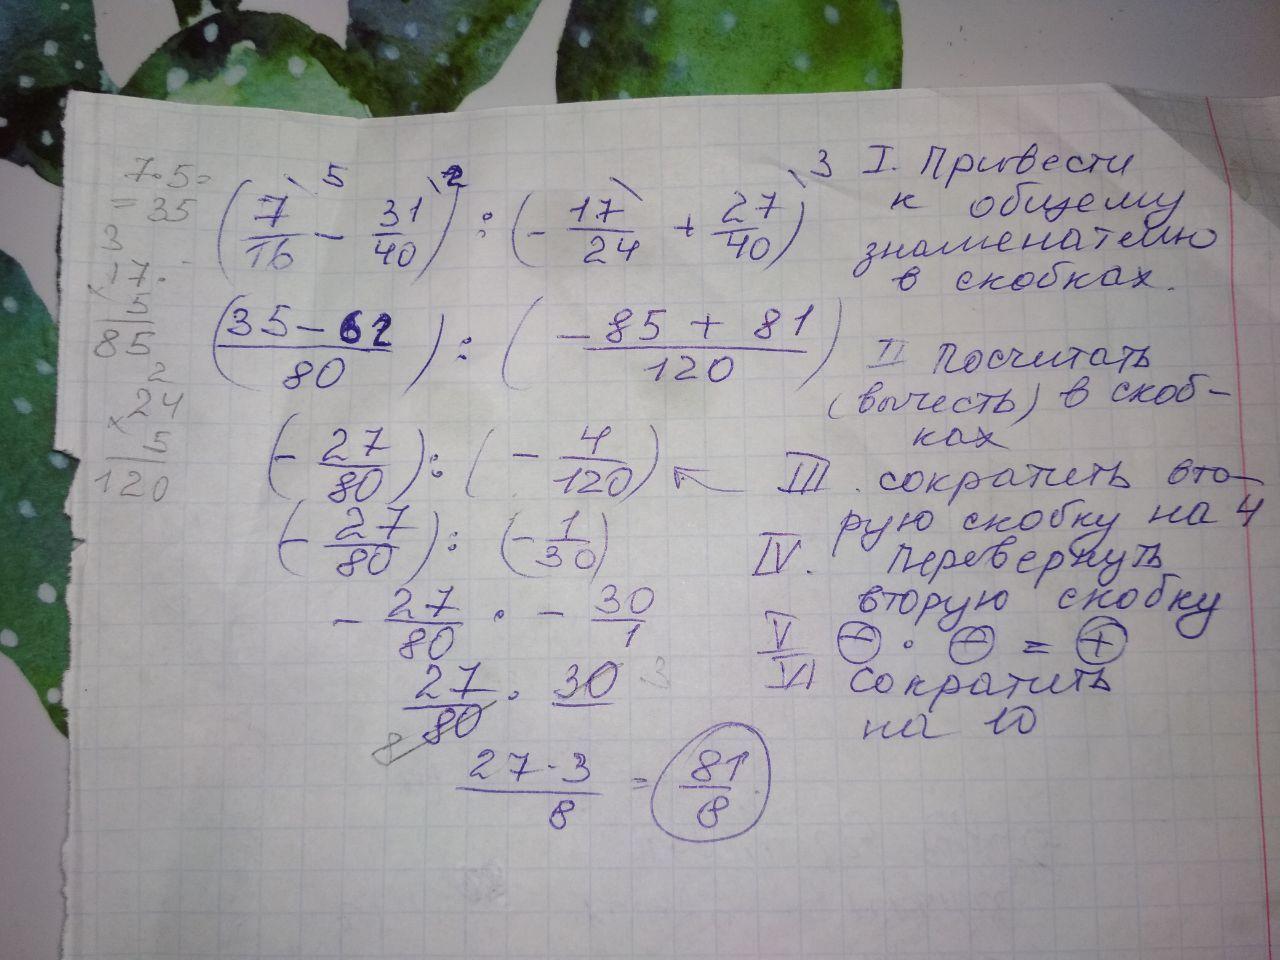 7·5=
=35
3
×17
5
85
2
×24
5
120
(7/16 \5 − 31/40 \2) : (− 17/24 \ + 27/40 \3)
(35−62/80) : (−85+81/120)
(−27/80) : (−4/120) ←
(−27/80) : (−1/30)
−27/80 · −30/1
27/80 · 30 3
8
27·3/8 = 81/8
I. Привести
к общему
знаменателю
в скобках.
II Посчитать
(вычесть) в скоб-
ках
III. сократить вто-
рую скобку на 4
IV. Перевернуть
вторую скобку
V ⊖ · ⊖ = ⊕
VI Сократить
на 10